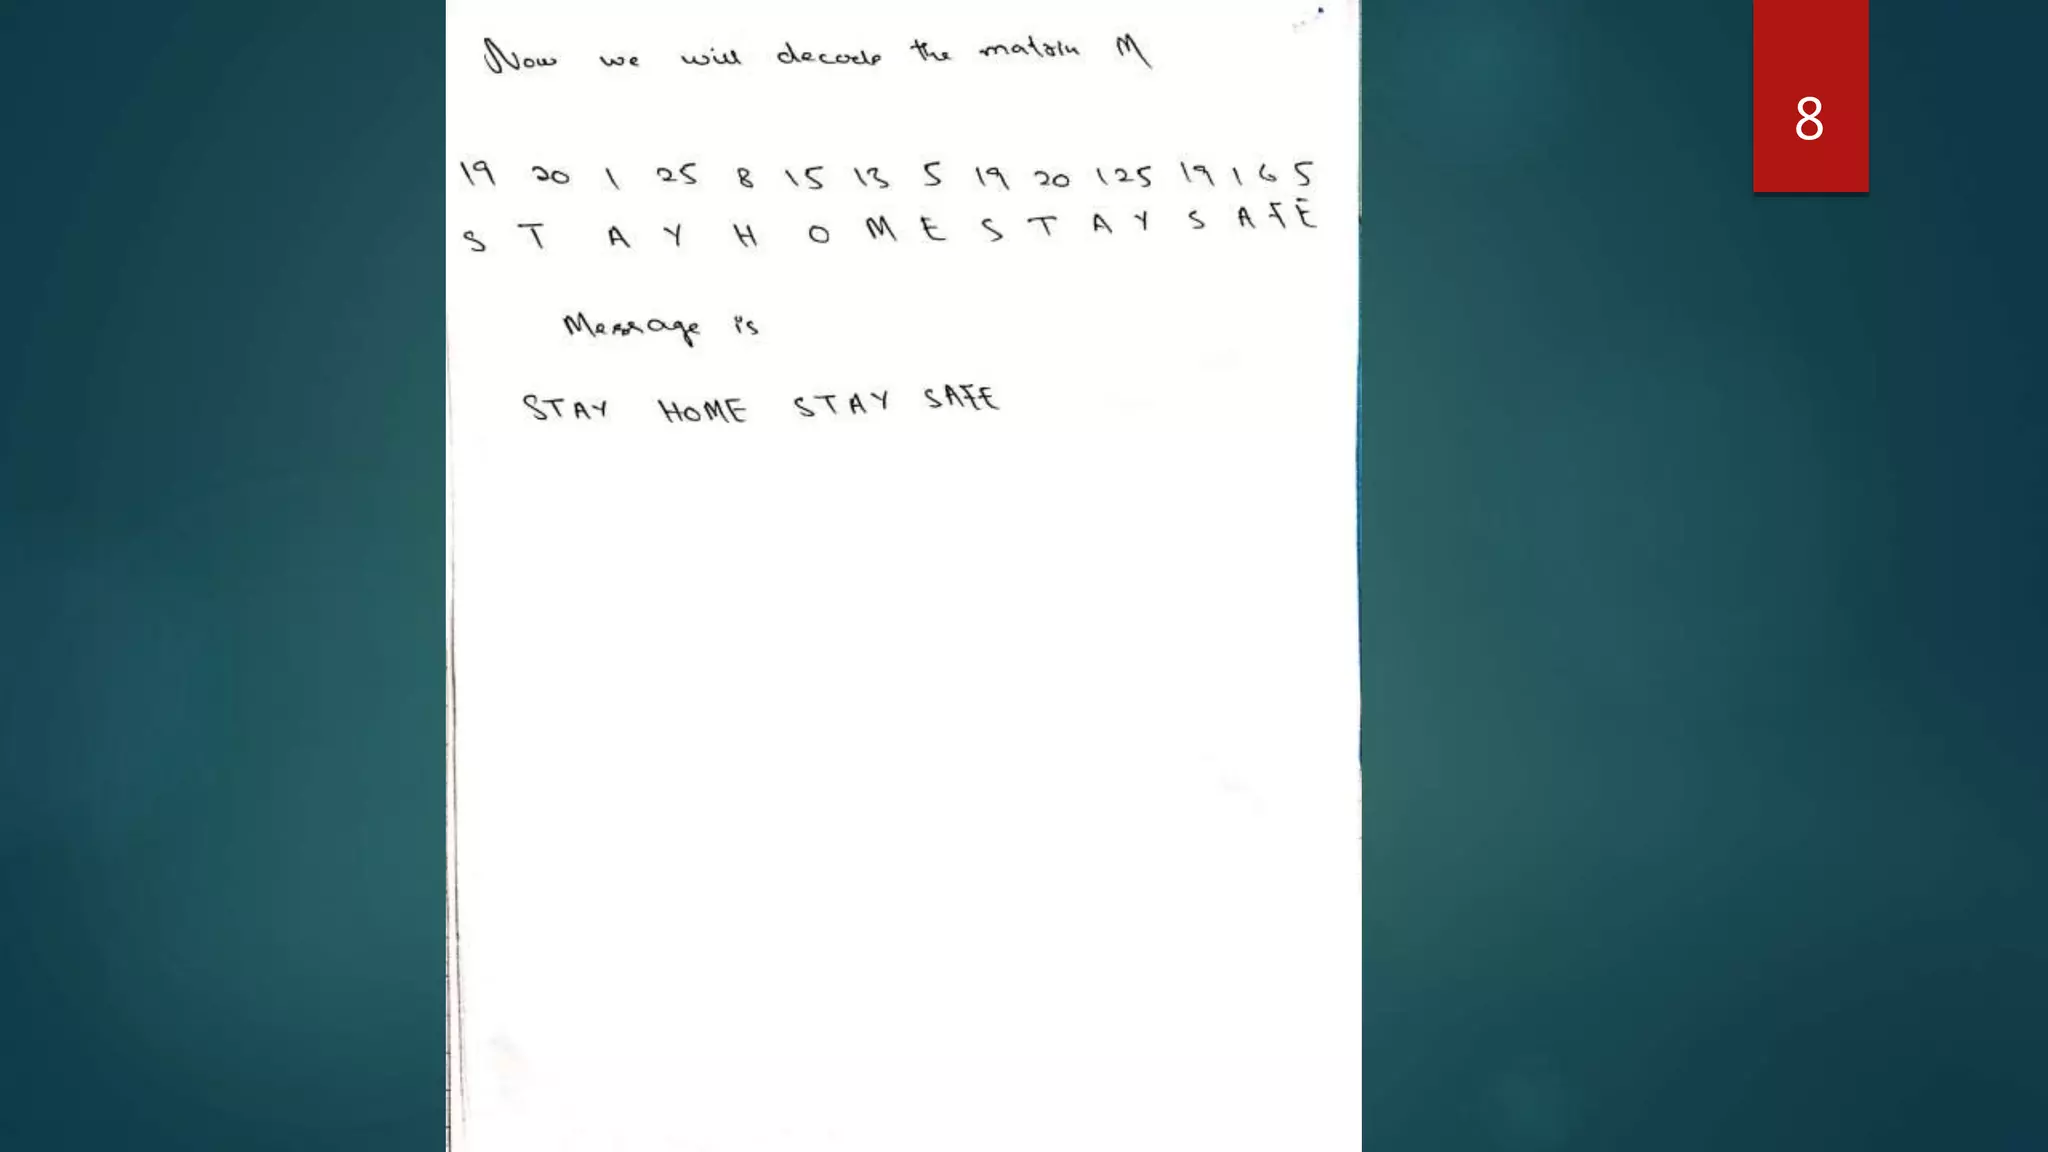 Now we will decode the matrix M
8
19 20 1 25 8 15 13 5 19 20 1 25 19 1 6 5
S T A Y H O M E S T A Y S A F E
Message is
STAY HOME STAY SAFE